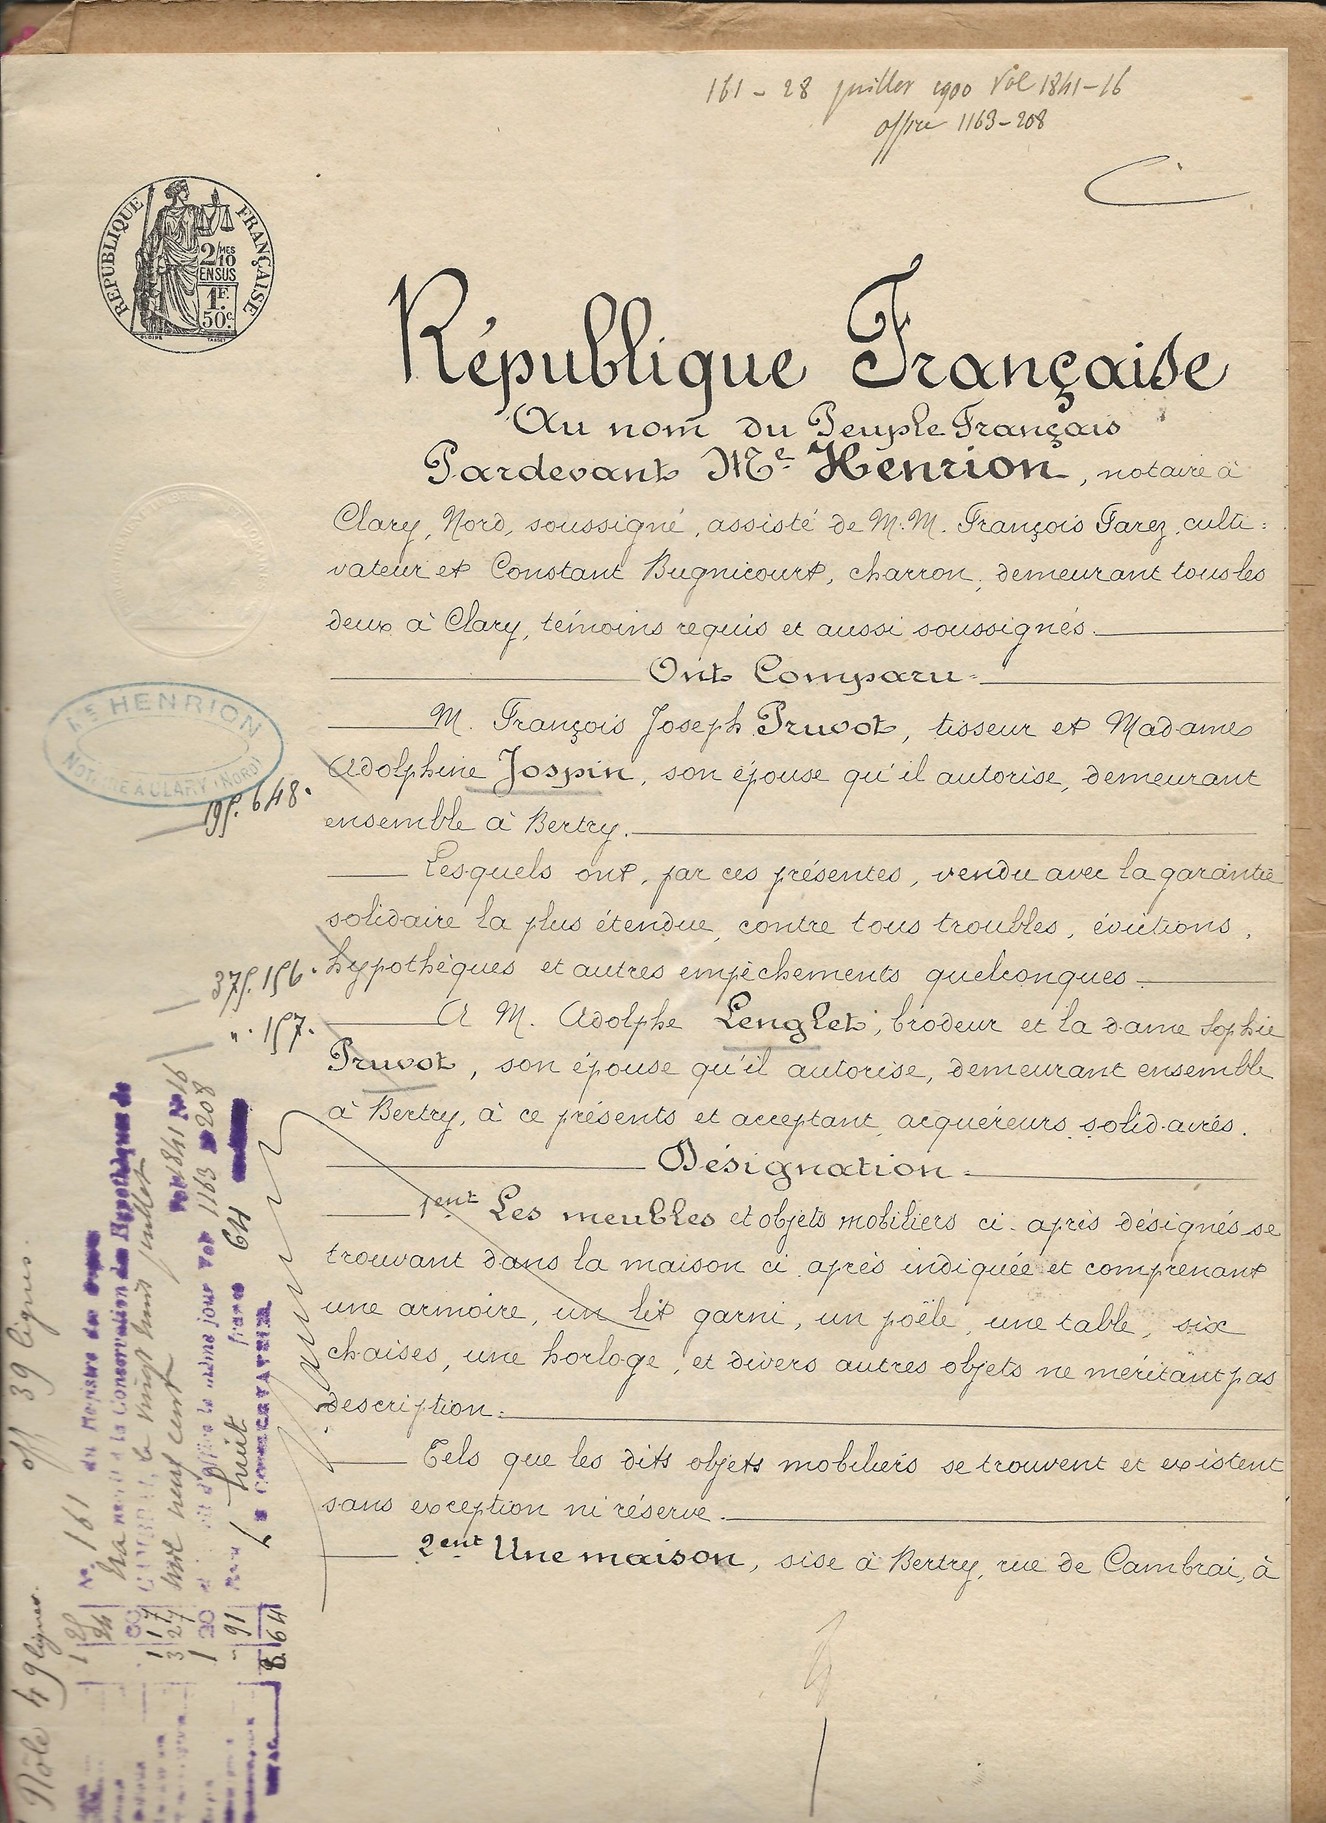 161 - 28 juillet 1900 Vol 1841-16
offre 1163-208
REPUBLIQUE FRANÇAISE
2/10 MES
EN SUS
1F.
50c.
République Française
Au nom du Peuple Français
Pardevant Me. Henrion, notaire à
Clary, Nord, soussigné, assisté de M.M. François Farez, culti=
vateur et Constant Bugnicourt, charron, demeurant tous les
deux à Clary, témoins requis et aussi soussignés.
Ont Comparu
M. François Joseph Pruvot, tisseur et Madame
Adolphine Jospin, son épouse qu'il autorise, demeurant
ensemble à Bertry.
Lesquels ont, par ces présentes, vendu avec la garantie
solidaire la plus étendue, contre tous troubles, évictions,
hypothèques et autres empêchements quelconques
A M. Adolphe Lenglet, brodeur et la dame Sophie
Pruvot, son épouse qu'il autorise, demeurant ensemble
à Bertry, à ce présents et acceptant, acquéreurs solidaires.
Désignation
1ent Les meubles et objets mobiliers ci-après désignés se
trouvant dans la maison ci après indiquée et comprenant
une armoire, un lit garni, un poële, une table, six
chaises, une horloge, et divers autres objets ne méritant pas
description.
Tels que les dits objets mobiliers se trouvent et existent
sans exception ni réserve.
2ent Une maison, sise à Bertry, rue de Cambrai, à
Me HENRION
NOTAIRE A CLARY (NORD)
195.648.
375.156.
". 157.
Rôle 49 lignes. off 39 lignes.
No. 161 du Registre des
à la Conservation des Hypothèques de
CAMBRAI, le vingt huit juillet
mil neuf cent Vol 1841 No 16
le même jour Vol 1163 No 208
huit francs 64
LE CONSERVATEUR
1 25
24
60
1 17
3 27
1 20
" 91
8 64